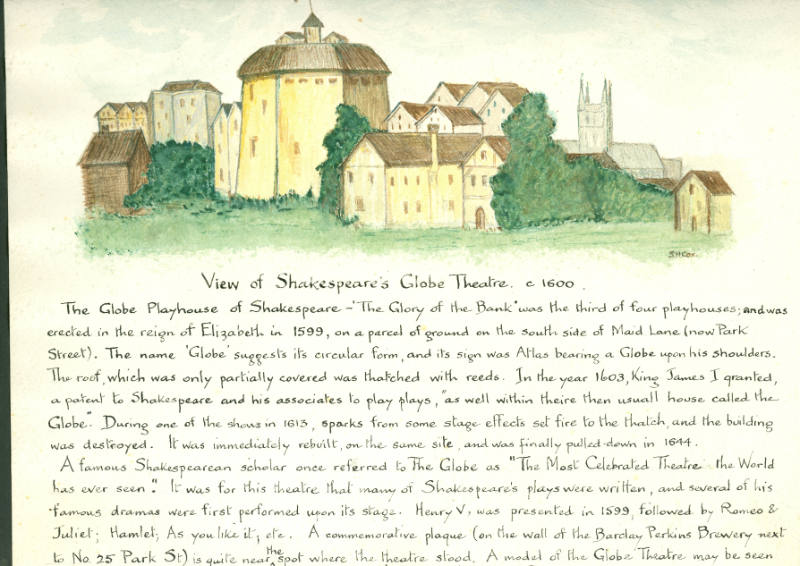 S.H. Cox.
View of Shakespeare's Globe Theatre. c 1600.
The Globe Playhouse of Shakespeare - 'The Glory of the Bank' was the third of four playhouses; and was
erected in the reign of Elizabeth in 1599, on a parcel of ground on the south side of Maid Lane (now Park
Street). The name 'Globe' suggests its circular form, and its sign was Atlas bearing a Globe upon his shoulders.
The roof, which was only partially covered was thatched with reeds. In the year 1603, King James I granted,
a patent to Shakespeare and his associates to play plays, "as well within theire then usuall house called the
Globe". During one of the shows in 1613, sparks from some stage effects set fire to the thatch, and the building
was destroyed. It was immediately rebuilt, on the same site, and was finally pulled-down in 1644.
A famous Shakespearean scholar once referred to The Globe as "The Most Celebrated Theatre the World
has ever seen". It was for this theatre that many of Shakespeare's plays were written, and several of his
famous dramas were first performed upon its stage. Henry V, was presented in 1599, followed by Romeo &
Juliet; Hamlet; As you like it; etc. A commemorative plaque (on the wall of the Barclay Perkins Brewery next
to No 25 Park St) is quite near the spot where the theatre stood. A model of the Globe Theatre may be seen